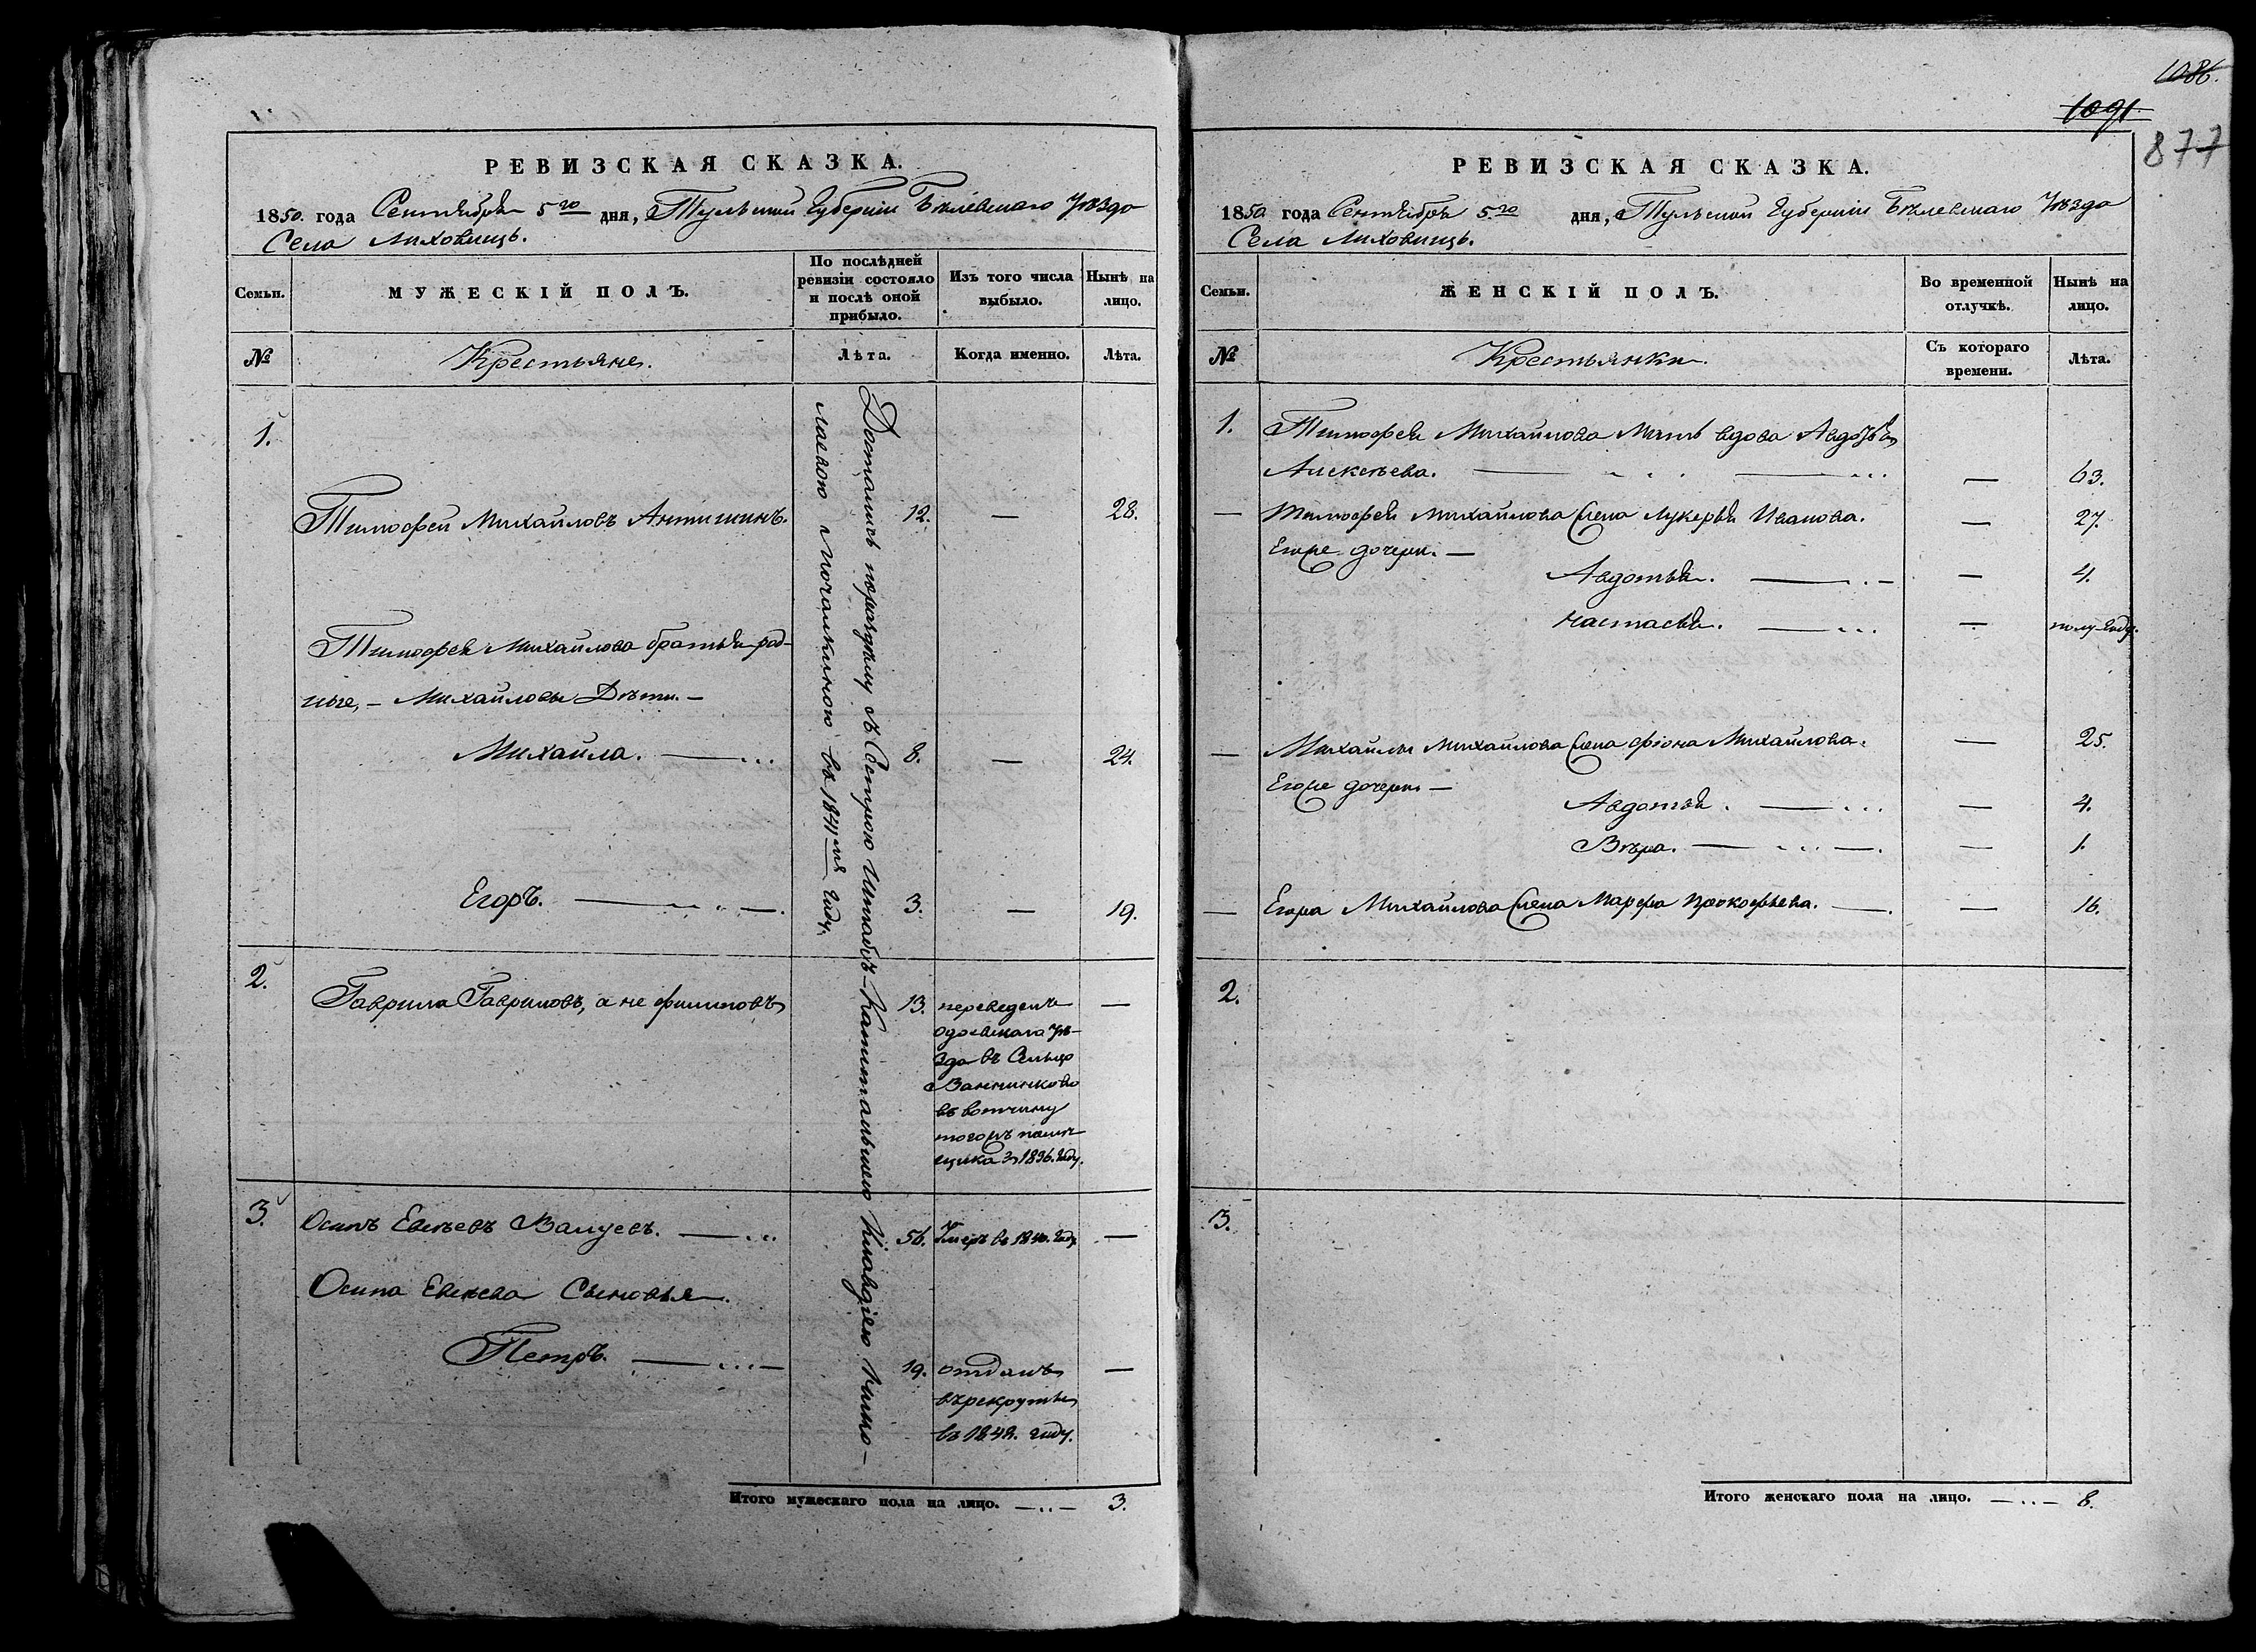 1086.
1091.
877
РЕВИЗСКАЯ СКАЗКА.
1850. года Сентября 5го дня, Тульской Губернии Бѣлевскаго Уѣзда
Села
Семьи.
МУЖЕСКІЙ ПОЛЪ.
По послѣдней
ревизіи состояло
и послѣ оной
прибыло.
Изъ того числа
выбыло.
Нынѣ на
лицо.
№
Крестьяне.
Лѣта.
Когда именно.
Лѣта.
Достались по раздѣлу съ Сестрою Штабсъ-Капитаншею Клавдіею Нико-
лаевою Мочалкиною въ 1841мъ Году.
1.
Тимофей Михайловъ Антишинъ. 12. — 28.
Тимофея Михайлова братья род-
ные, – Михайловы Дѣти. –
Михайла. — 8. — 24.
Егоръ. — 3. — 19.
2. Гаврила Гавриловъ, а не Филиповъ 13. переведенъ —
Одоевскаго Уѣ-
зда въ Сельцо
въ вотчину
тогожъ помѣ-
щика въ 1836. Году.
3. Осипъ Евсѣевъ Валуевъ. — 56. Умеръ въ 1840. Году —
Осипа Евсѣева Сыновья.
Петръ. — 19. отданъ —
въ рекруты
въ 1842. году.
Итого мужескаго пола на лицо. — 3.
РЕВИЗСКАЯ СКАЗКА.
1850 года Сентября 5.го дня, Тульской Губерніи Бѣлевскаго Уѣзда
Села
Семьи.
ЖЕНСКІЙ ПОЛЪ.
Во временной
отлучкѣ.
Нынѣ на
лицо.
№
Крестьянки.
Съ котораго
времени.
Лѣта.
1. Тимофея Михайлова Мать вдова Авдотья
Алексѣева. — — 63.
— Тимофея Михайлова Жена Лукерья Иванова. — 27.
Егоже дочери. —
Авдотья. — — 4.
Настасья. — — полугоду.
— Михайлы Михайлова Жена Фіона Михайлова. — 25.
Егоже дочери —
Авдотья. — — 4.
Вѣра. — — 1.
— Егора Михайлова Жена Марфа Прокофьева. — — 16.
2.
3.
Итого женскаго пола на лицо. — 8.